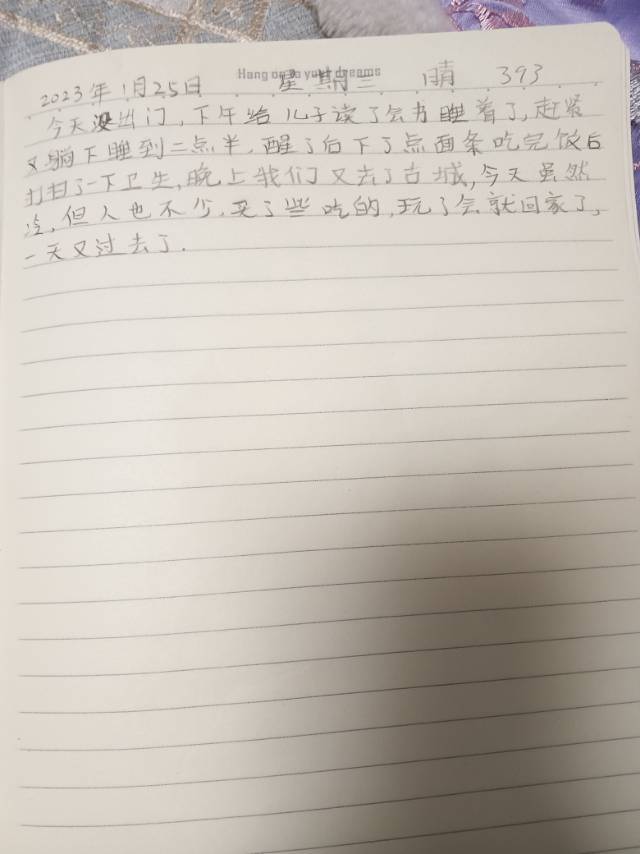 Hang on to your dreams
2023年1月25日 星期三 晴 393
今天没出门,下午给儿子读了会书睡着了,赶紧
又躺下睡到二点半,醒了后下了点面条吃完饭后
打扫了一下卫生,晚上我们又去了古城,今天虽然
冷,但人也不少,买了些吃的,玩了会就回家了,
一天又过去了.